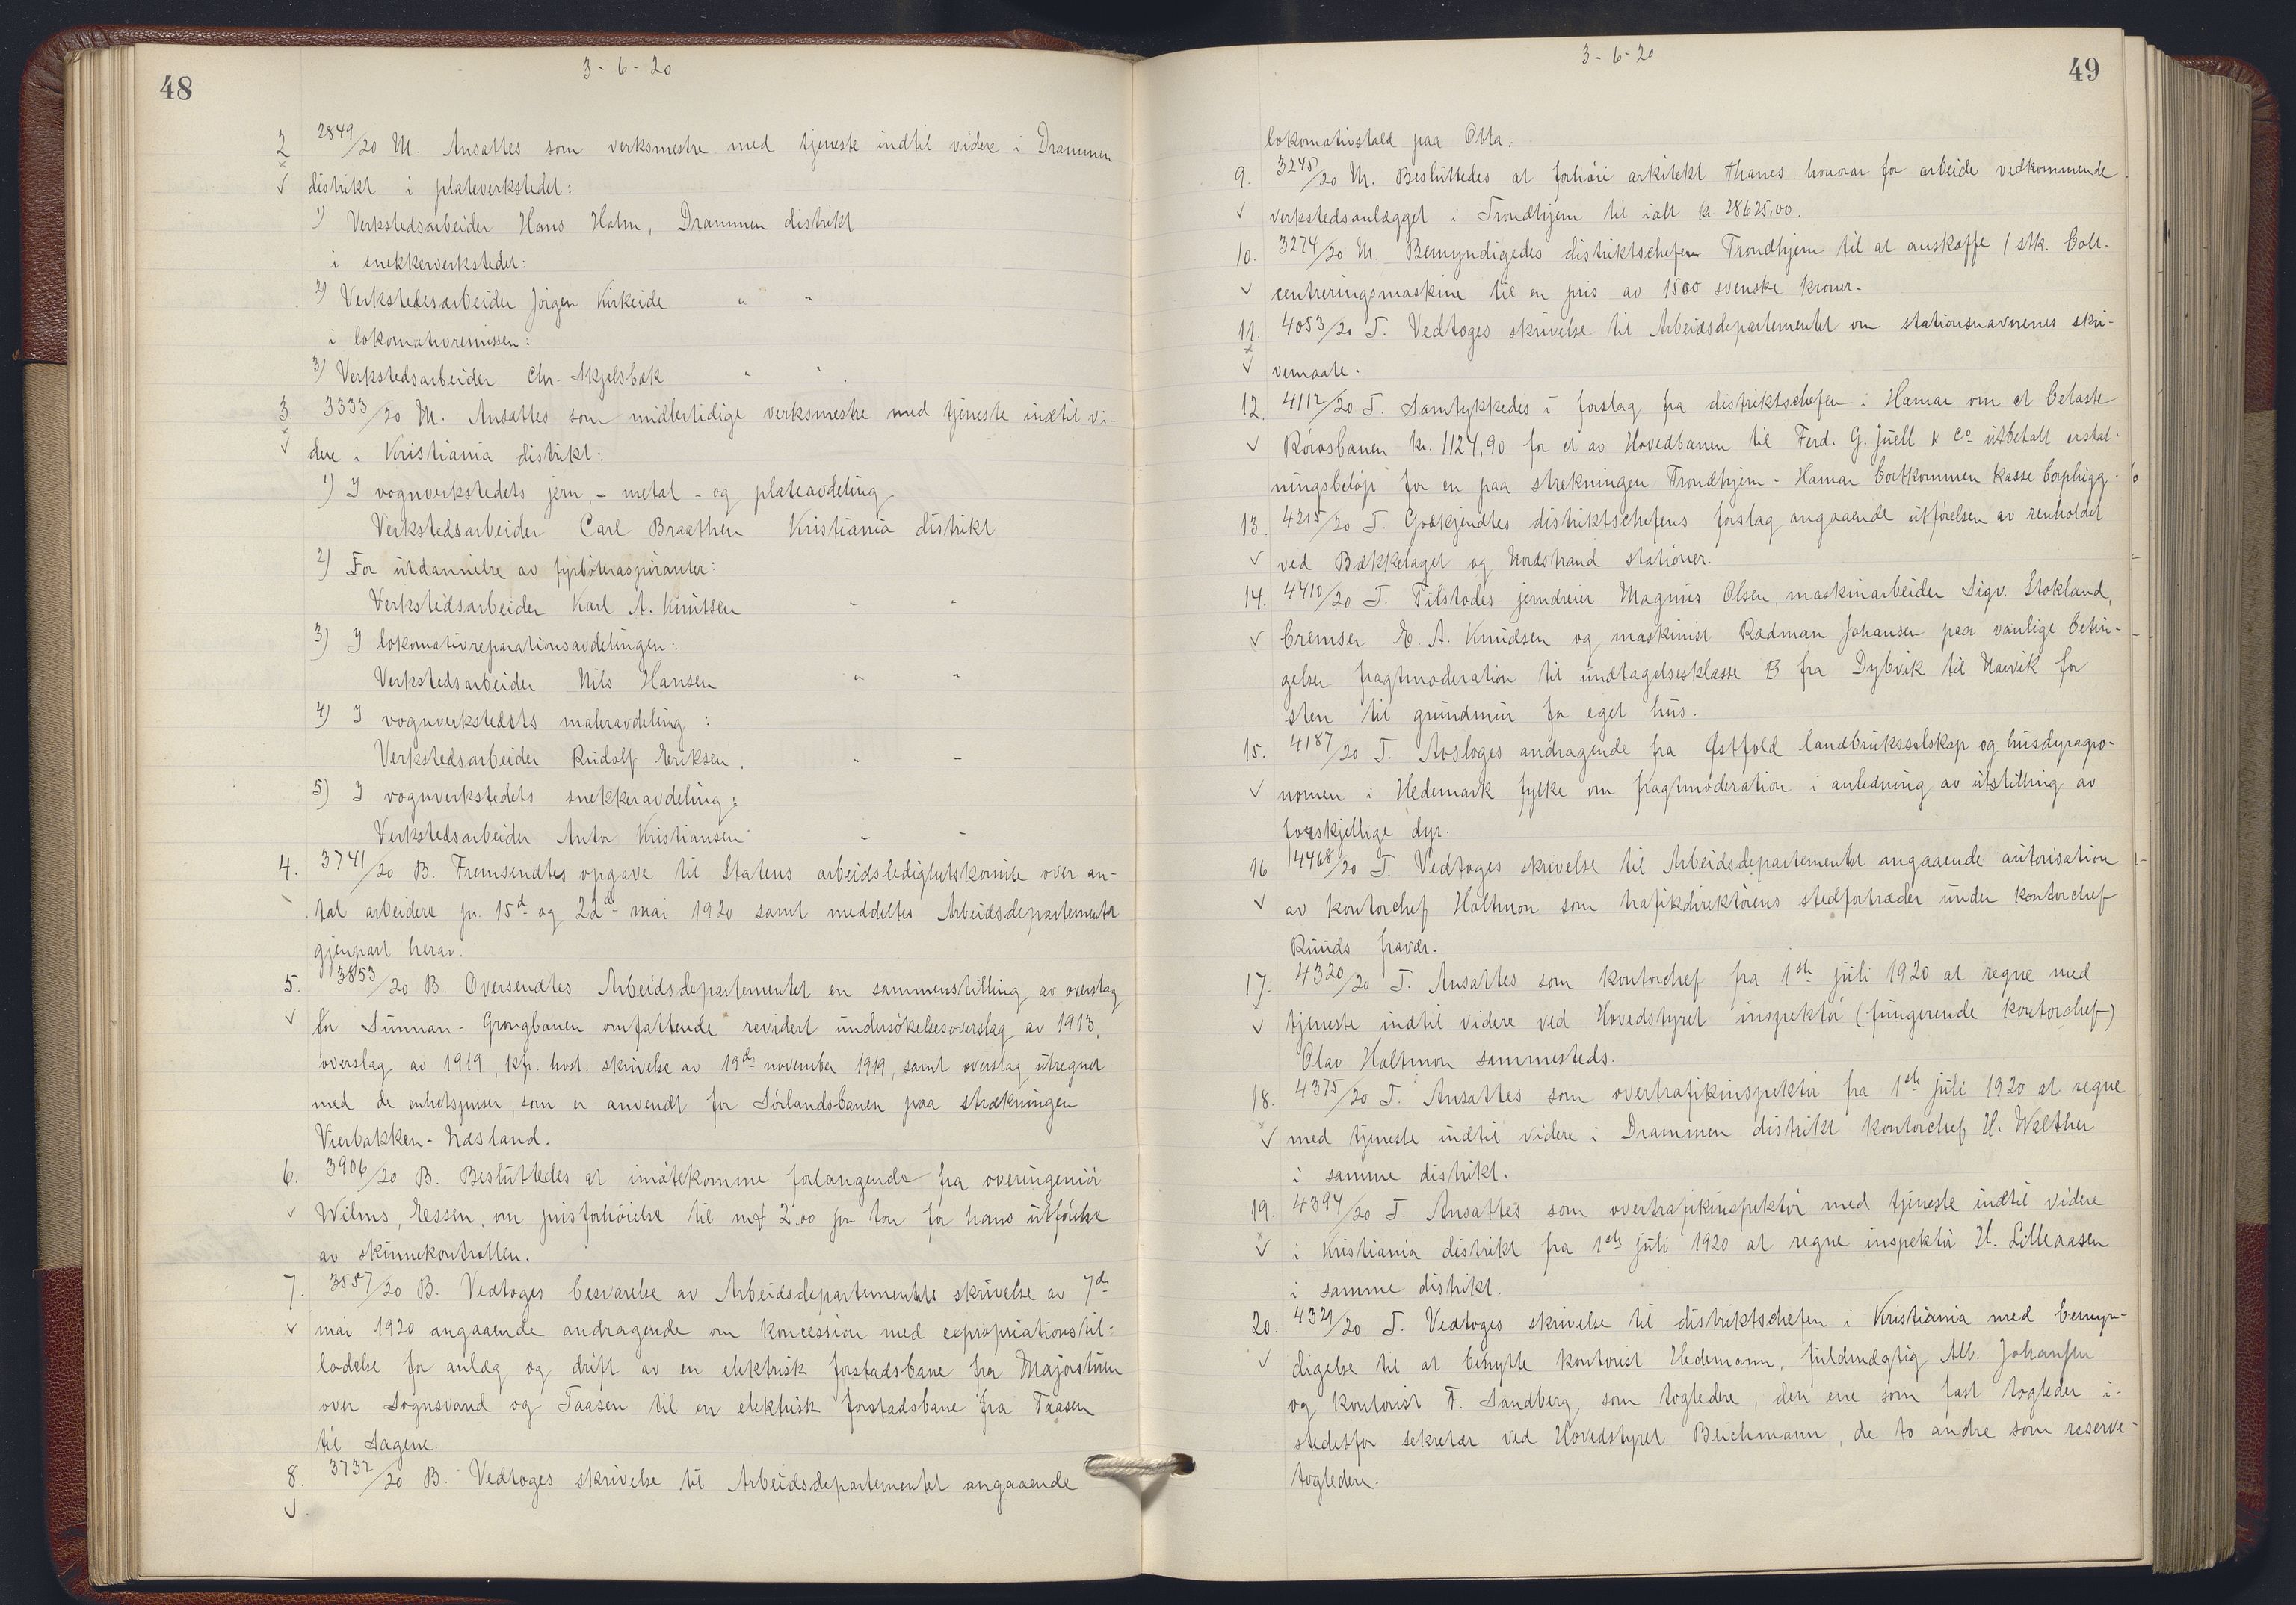 48
3-6-20
2 2849/20 M. Ansattes som verksmestre med tjeneste indtil videre i Drammen
distrikt i plateverkstedet:
1) Verkstedsarbeider Hans Holm, Drammen distrikt
i snekkerverkstedet:
2) Verkstedsarbeider Jörgen Kirkeide " "
i lokomotivremissen:
3) Verkstedsarbeider Chr. Skjelsbæk " "
3 3333/20 M. Ansattes som midlertidige verksmestre med tjeneste indtil vi-
dere i Kristiania distrikt:
1) I vognverkstedets jern,- metal- og plateavdeling
Verkstedsarbeider Carl Braathen Kristiania distrikt
2) For utdannelse av fyrböteraspiranter:
Verkstedsarbeider Karl A. Knutsen " "
3) I lokomotivreparationsavdelingen:
Verkstedsarbeider Nils Hansen " "
4) I vognverkstedets maleravdeling:
Verkstedsarbeider Rudolf Eriksen. " "
5) I vognverkstedets snekkeravdeling:
Verkstedsarbeider Anton Kristiansen " "
4. 3741/20 B. Fremsendtes opgave til Statens arbeidsledighetskomite over an-
tal arbeidere pr. 15de og 22de mai 1920 samt meddeltes Arbeidsdepartementet
gjenpart herav.
5. 3853/20 B. Oversendtes Arbeidsdepartementet en sammenstilling av overslag
for Sunnan-Grongbanen omfattende revidert undersökelsesoverslag av 1913,
overslag av 1919, kfr. hvst. skrivelse av 19de november 1919, samt overslag utregnet
med de enhetspriser, som er anvendt for Sörlandsbanen paa strækningen
Vierbakken-Næsland.
6. 3906/20 B. Besluttedes at imötekomme forlangende fra overingeniör
Wilms, Essen, om prisforhöielse til mk 2.00 pr ton for hans utförelse
av skinnekontrollen.
7. 3557/20 B. Vedtoges besvarelse av Arbeidsdepartementets skrivelse av 7de
mai 1920 angaaende andragende om koncession med expropriationstil-
ladelse for anlæg og drift av en elektrisk forstadsbane fra Majorstuen
over Sognsvand og Taasen til en elektrisk forstadsbane fra Taasen
til Sagene.
8. 3732/20 B. Vedtoges skrivelse til Arbeidsdepartementet angaaende
49
3-6-20
lokomotivstald paa Otta.
9. 3245/20 M. Besluttedes at forhöie arkitekt Thanes honorar for arbeide vedkommende
verkstedsanlægget i Trondhjem til ialt kr 28625,00.
10. 3274/20 M. Bemyndigedes distriktschefen Trondhjem til at anskaffe 1 stk. bolt-
centreringsmaskine til en pris av 1500 svenske kroner.
11. 4053/20 T. Vedtoges skrivelse til Arbeidsdepartementet om stationsnavnenes skri-
vemaate.
12. 4112/20 T. Samtykkedes i forslag fra distriktschefen i Hamar om at belaste
Rörosbanen kr. 1124,90 for et av Hovedbanen til Ferd. G. Juell & Co utbetalt erstat-
ningsbelöp for en paa strekningen Trondhjem-Hamar bortkommen kasse
13. 4215/20 T. Godkjendtes distriktschefens forslag angaaende utförelsen av renholdet
ved Bækkelaget og Nordstrand stationer.
14. 4410/20 T. Tilstodes jerndreier Magnus Olsen, maskinarbeider Sigv. Stokland,
bremser E. A. Knudsen og maskinist Radman Johansen paa vanlige betin-
gelser fragtmoderation til undtagelsesklasse B fra Dybvik til Narvik for
sten til grundmur for eget hus.
15. 4187/20 T. Avsloges andragende fra Østfold landbruksselskap og husdyragro-
nomen i Hedemark fylke om fragtmoderation i anledning av utstilling av
forskjellige dyr.
16 4468/20 T. Vedtoges skrivelse til Arbeidsdepartementet angaaende autorisation
av kontorchef Holtmon som trafikdirektörens stedfortræder under kontorchef
Ruuds fravær.
17. 4320/20 T. Ansattes som kontorchef fra 1ste juli 1920 at regne med
tjeneste indtil videre ved Hovedstyret inspektör (fungerende kontorchef)
Olav Holtmon sammesteds.
18. 4375/20 T. Ansattes som overtrafikinspektör fra 1ste juli 1920 at regne
med tjeneste indtil videre i Drammen distrikt kontorchef H. Walther
i samme distrikt.
19. 4394/20 T. Ansattes som overtrafikinspektör med tjeneste indtil videre
i Kristiania distrikt fra 1ste juli 1920 at regne inspektör H. Lilleaasen
i samme distrikt.
20. 4329/20 T. Vedtoges skrivelse til distriktschefen i Kristiania med bemyn-
digelse til at benytte kontorist Hedemann, fuldmægtig Alb. Johansen
og kontorist F. Sandberg, som togledere, den ene som fast togleder i-
stedetfor sekretær ved Hovedstyret Beichmann, de to andre som reserve-
togledere.